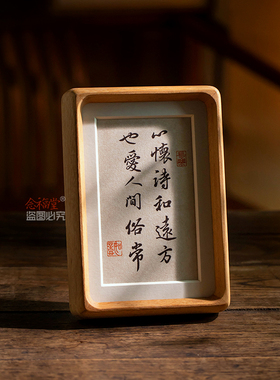 心懷詩和遠方
也愛人間俗常
念福堂
盗图必究